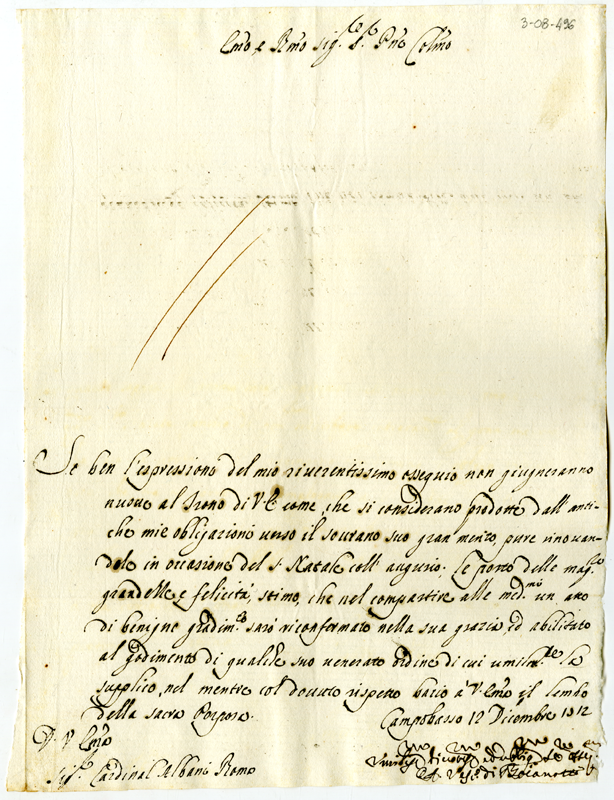 3-08-496
Emo e Rmo Sig.re Pne Colmo
Se ben l'espressione del mio riverentissimo ossequio non giugneranno
nuove al Trono di V. E. come, che si considerano prodotte dall'anti-
che mie obligazioni verso il sovrano suo gran merito, pure rinovan-
dole in occasione del S. Natale coll'augurio. Le porto delle mag.re
grandezze e felicità, stimo, che nel compartire alle med.me un atto
di benigno gradim.to sarò riconfermato nella sua grazia ed abilitato
al godimento di qualche suo venerato ordine di cui umilm.te la
supplico, nel mentre col dovuto rispetto bacio a V. Emo il lembo
della sacra Porpora.
Campobasso 12 Dicembre 1712
D. V. Emo
Sig.r Cardinal Albano Roma
di